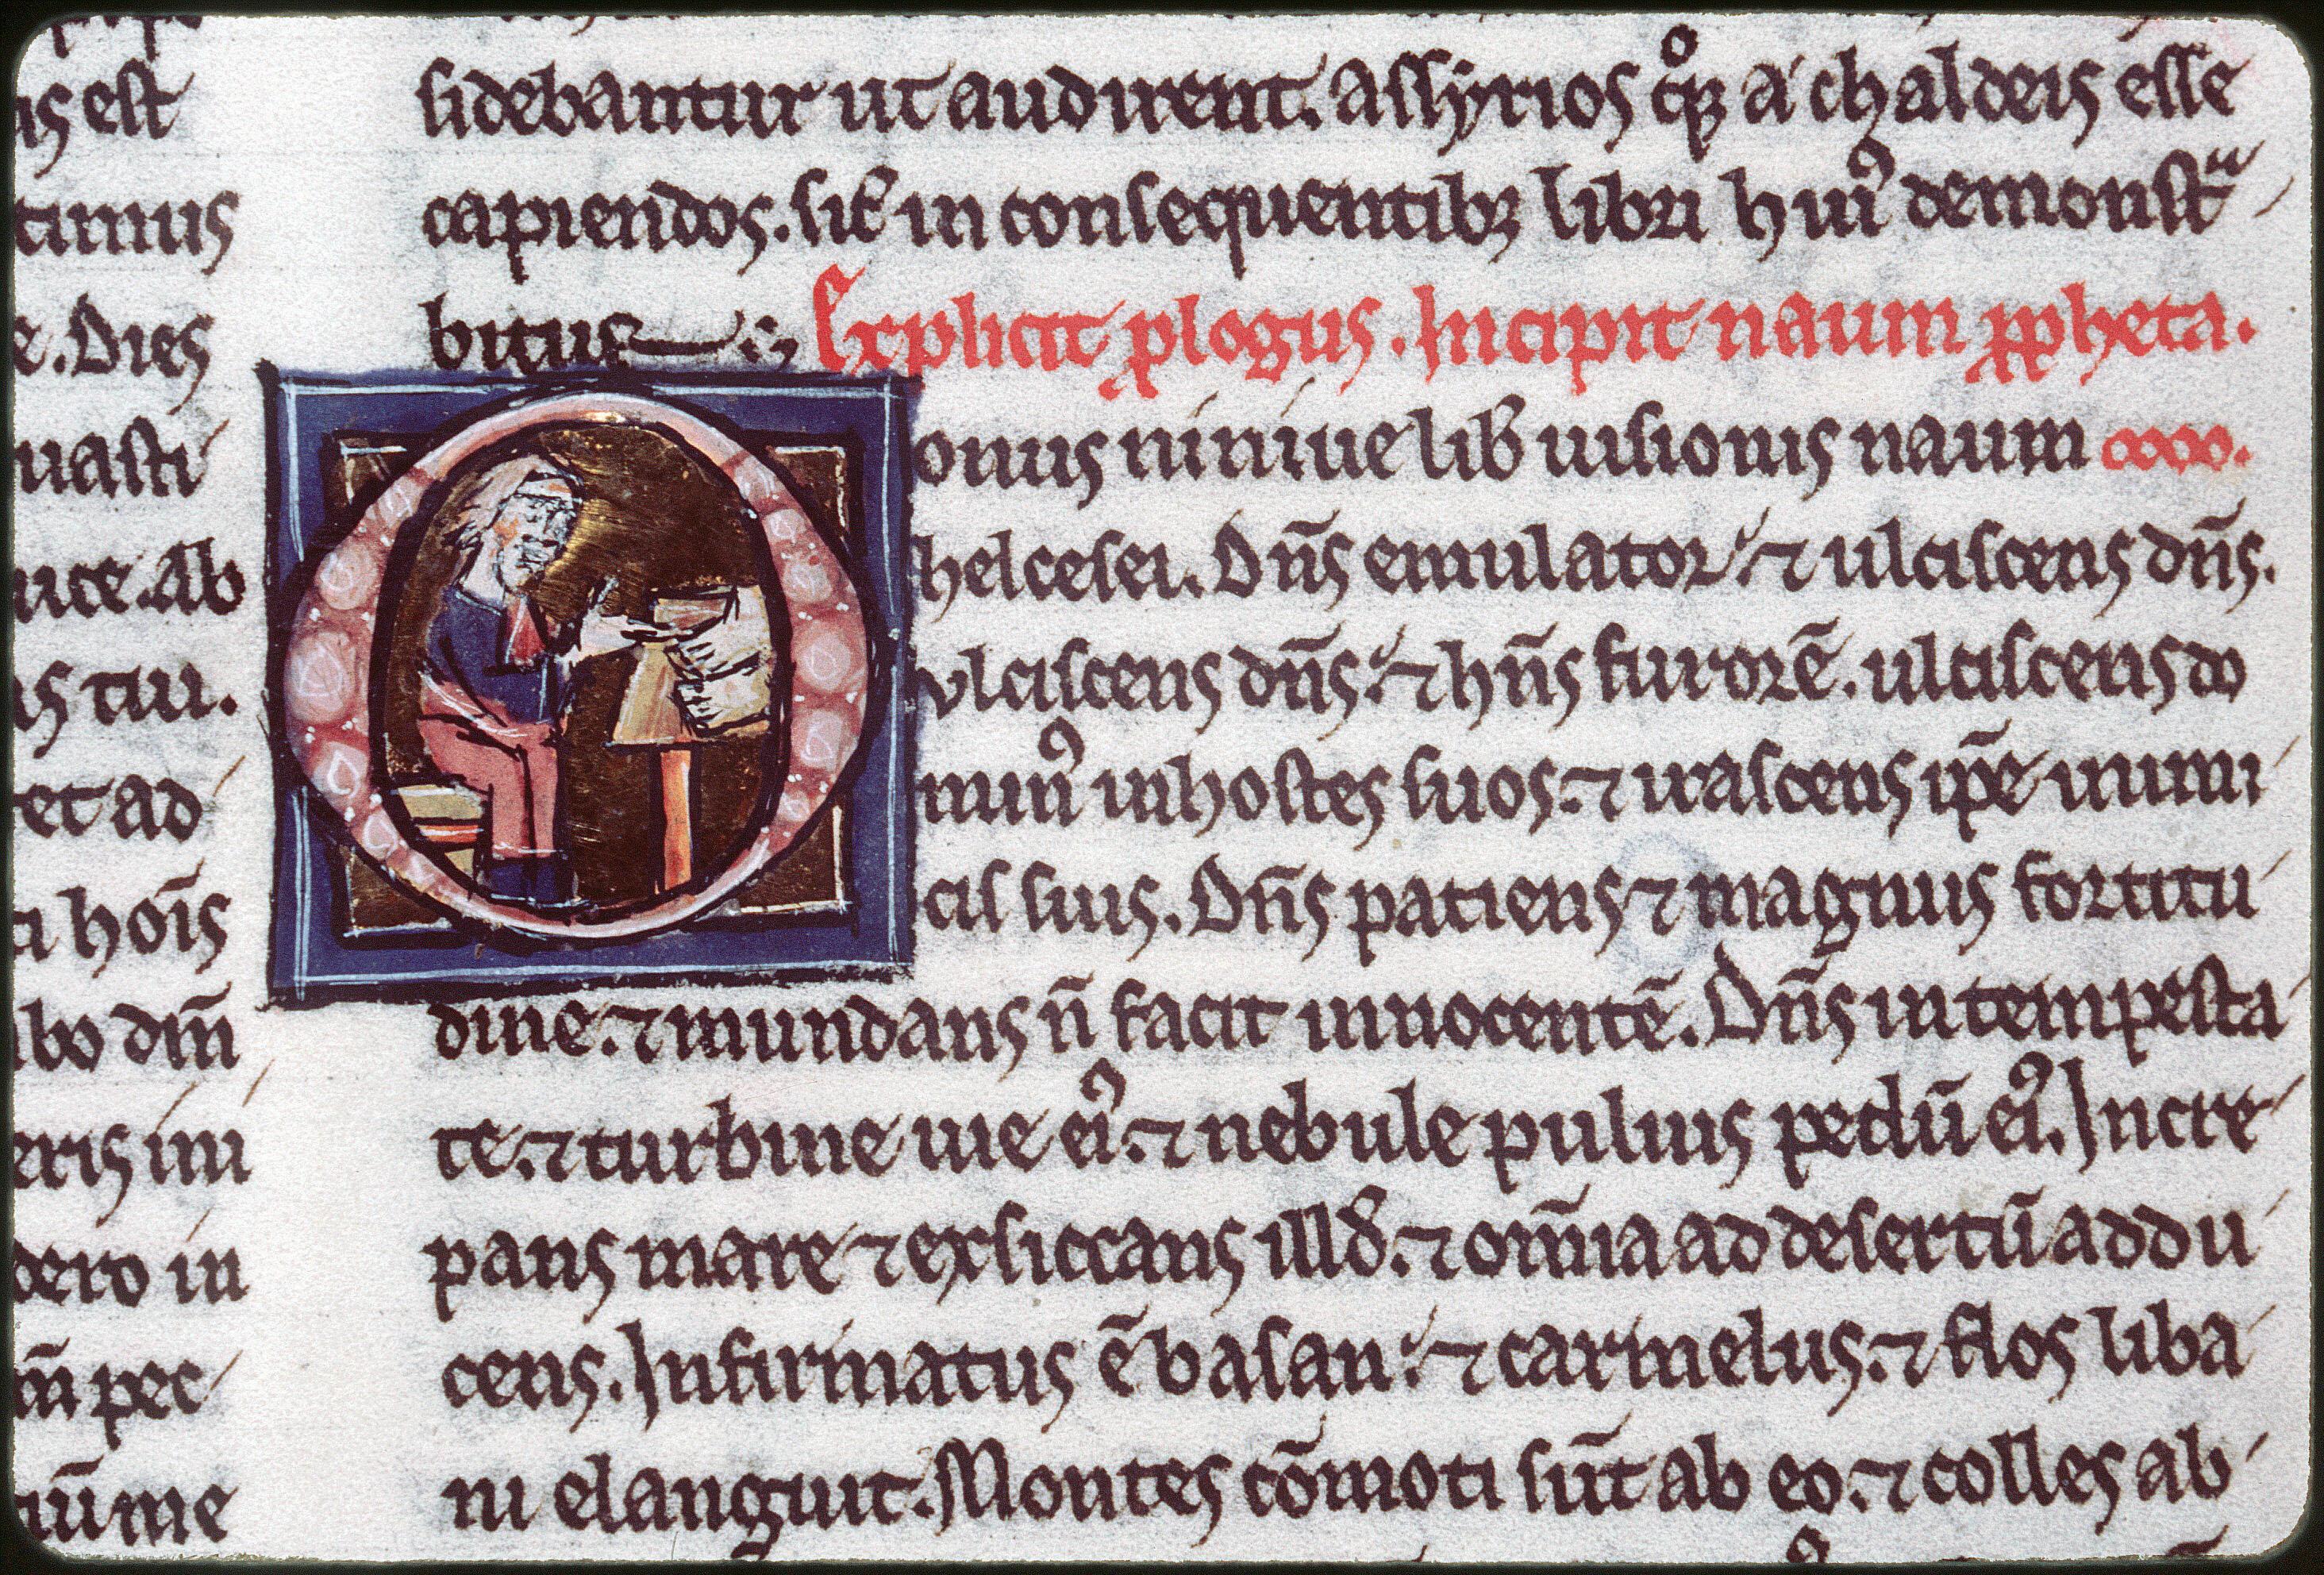 is est
timus
e. Dies
uasti
uice. Ab
is tui.
et ad
ti hoīs
bo dm̄
eris im
dero in
m̄ pec
ūme
sidebantur ut audirent. Assyrios qͦꝫ a chaldeis esse
capiendos. sic̄ in consequentibꝫ libri huiꝰ demonstᵃ
bitur Explicit ꝓlogus. Incipit naum ꝓpheta.
Onus niniue lib̄ uisionis naum
helcesei. Dn̄s emulator ⁊ ulciscens dn̄s.
vlciscens dn̄s ⁊ hn̄s furorē. ulciscens do
minꝰ in hostes suos. ⁊ irascens ip̄e inimi
cis suis. Dn̄s patiens ⁊ magnus fortitu
dine. ⁊ mundans n̄ facit innocentē. Dn̄s in tempesta
te. ⁊ turbine uie eiꝰ. ⁊ nebule puluis pedū eiꝰ. Incre
pans mare ⁊ exsiccans illđ. ⁊ om̄ia ad desertū addu
cens. Infirmatus ē basan ⁊ carmelus. ⁊ flos liba
ni elanguit. Montes cōmoti sūt ab eo. ⁊ colles ab